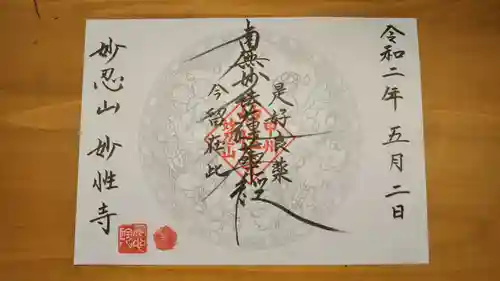 令和二年 五月二日
是好良薬
南無妙法蓮華経
今留在此
甲州
妙忍山
妙忍山 妙性寺